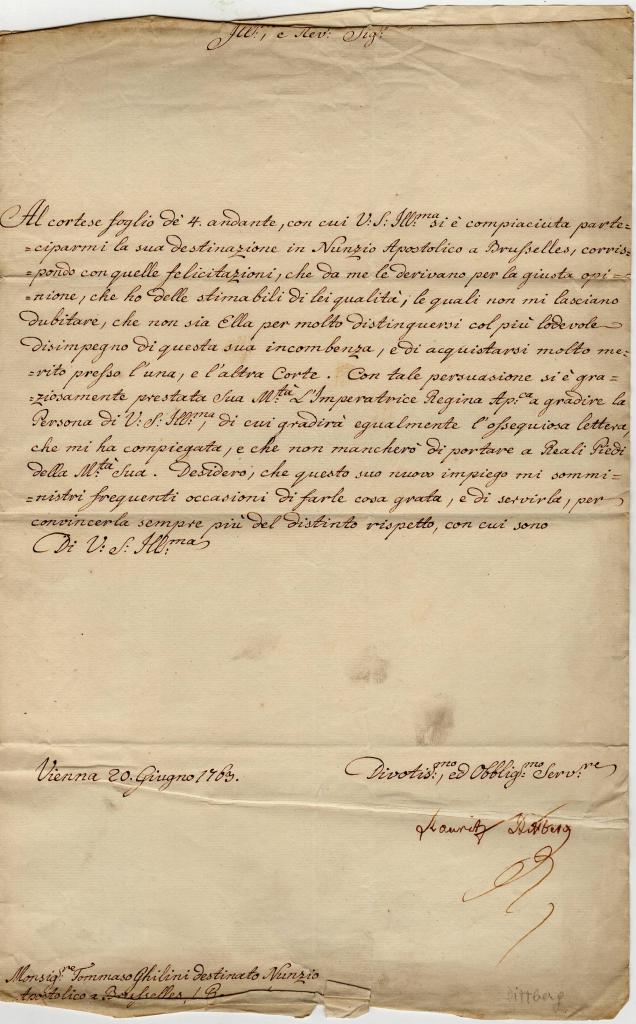 Ill.mo, e Rev.mo Sig.re
Al cortese foglio de' 4. andante, con cui V: S: Ill:ma si è compiaciuta parte=
=ciparmi la sua destinazione in Nunzio Apostolico a Brusselles, corris=
pondo con quelle felicitazioni, che da me le derivano per la giusta opi=
=nione, che ho delle stimabili di lei qualità; le quali non mi lasciano
dubitare, che non sia Ella per molto distinguersi col più lodevole
disimpegno di questa sua incombenza, e di acquistarsi molto me=
=rito presso l'una, e l'altra Corte. Con tale persuasione si è gra=
=ziosamente prestata Sua M:tà L'Imperatrice Regina Ap:ca a gradire la
Persona di V: S: Ill:ma, di cui gradirà egualmente l'ossequiosa lettera
che mi ha compiegata, e che non mancherò di portare a Reali Piedi
della M:tà Sua. Desidero, che questo suo nuovo impiego mi sommi=
=nistri frequenti occasioni di farle cosa grata, e di servirla, per
convincerla sempre più del distinto rispetto, con cui sono
Di V: S: Ill:ma
Vienna 20. Giugno 1763.
Divotis:mo, ed Obblig:mo Serv:re
Monsig:re Tommaso Ghilini destinato Nunzio
Apostolico a Brusselles
Dittberg